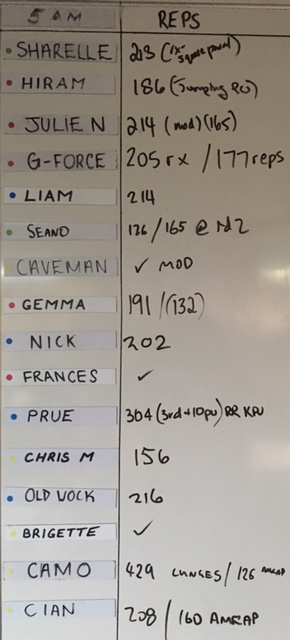 5 AM REPS
SHARELLE 213
HIRAM 186 (Jumping PU)
JULIE N 214 (mod) (165)
G-FORCE 205 rx / 177 reps
LIAM 214
SEANO 126 / 165 @ M2
CAVEMAN ✓ MOD
GEMMA 191 / (132)
NICK 202
FRANCES ✓
PRUE 304 (3rd + 10pu) RR KPU
CHRIS M 156
OLD WOCK 216
BRIGETTE ✓
CAMO 429 LUNGES / 126 AMRAP
CIAN 208 / 160 AMRAP